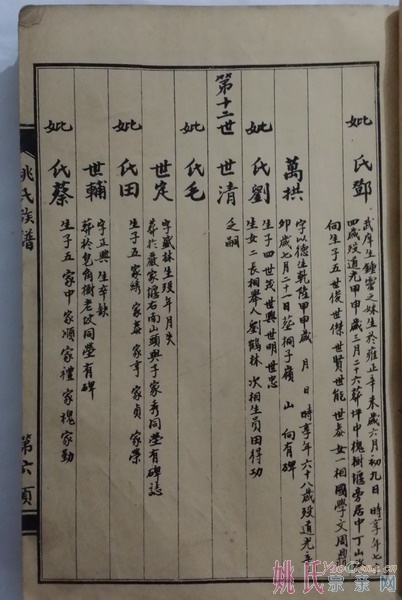 妣 氏鄧 武庠生鍾𤧟之妹生於雍正辛未歲六月初九日 時享年七十
四歲歿道光甲申歲三月二十六葬坪中槐樹堰旁居中丁山
向生子五世俊世傑世賢世能世泰女一相國學文周
萬拱 字以德生乾隆甲申歲 月 日 時享年六十八歲歿道光辛
卯歲七月二十一日塟桐子嶺 山 向有碑
妣 氏劉 生子四世茂世興世明世忠
生女二長相舉人劉鶴林 次相生員田得功
第十二世 世清 乏嗣
妣 氏毛
世定 字盛林生歿年月失
葬於嚴家堰右南山頭與子家秀同塋有碑誌
妣 氏田 生子五 家綉 家益 家亨 家貞 家榮
世輔 字正興 生卒缺
葬於皂角樹老坟同塋有碑
妣 氏蔡 生子五 家中 家順 家禮 家槐 家勤
姚氏族譜
第六頁
姚氏宗亲网
YaoChina.cn